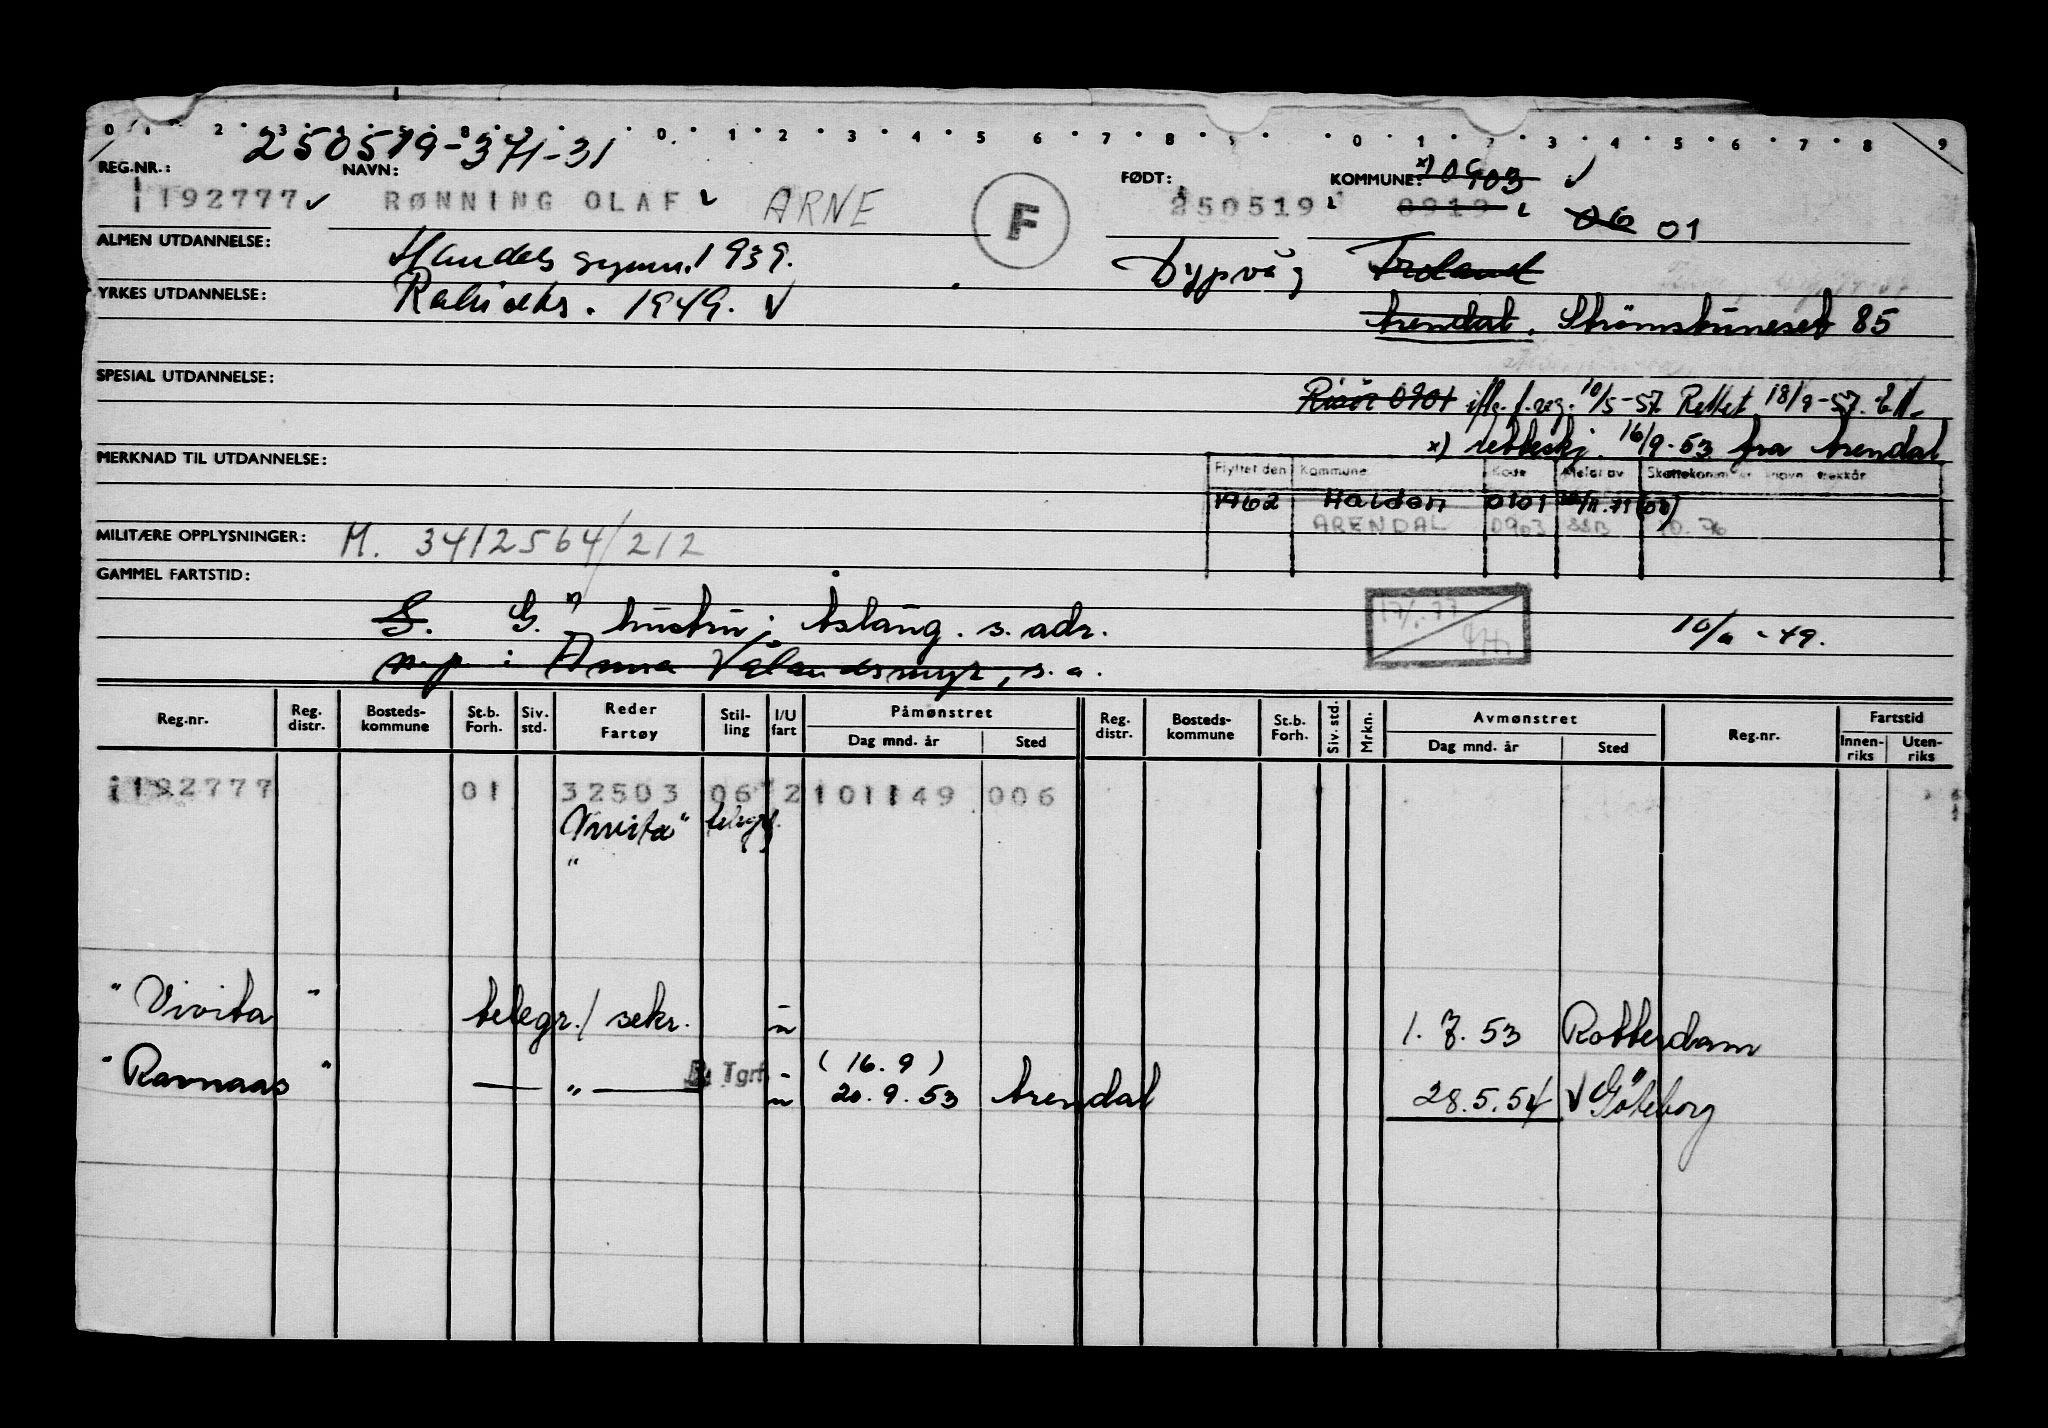 0 1 2 3 8 0. 1 2 3 4 5 6 7 8 9 0 1 2 3 4 5 6 7 8 9
250519-371-31
REG.NR.: NAVN: FØDT: KOMMUNE: x) 0903 √
192777 √ RØNNING OLAF ARNE F 250519 0919 06 01
ALMEN UTDANNELSE: Handels gymn. 1939. Dypvåg Froland
YRKES UTDANNELSE: 1949. √
Arendal. 85
SPESIAL UTDANNELSE:
Risør 0901 iflg. f.reg. 10/5-57. Rettet 18/9-57.
x) 16/9-53 fra Arendal
MERKNAD TIL UTDANNELSE:
Flyttet den Kommune Kode Meldt av
1962 Halden 0101
ARENDAL 0903 SSB 10.76
MILITÆRE OPPLYSNINGER: M. 3412564/212
GAMMEL FARTSTID:
S. G. hustru: Åslaug. s. adr. 17/1-77
n.p: Anna Vålandsmyr, s.a.
Reg.nr. Reg. distr. Bosteds-kommune St.b. Forh. Siv. std. Reder Fartøy Stil-ling I/U fart Påmønstret Dag mnd. år Sted Reg. distr. Bosteds-kommune St.b. Forh. Siv. std. Mrkn. Avmønstret Dag mnd. år Sted Reg.nr. Fartstid Innen-riks Uten-riks
192777 01 32503 06 2 101149 006
"Vivita"
"Vivita" telegr./sekr. u 1.7.53 Rotterdam
(16.9)
"Ravnaas" — " — Tgrf. u 20.9.53 Arendal 28.5.54 √ Göteborg